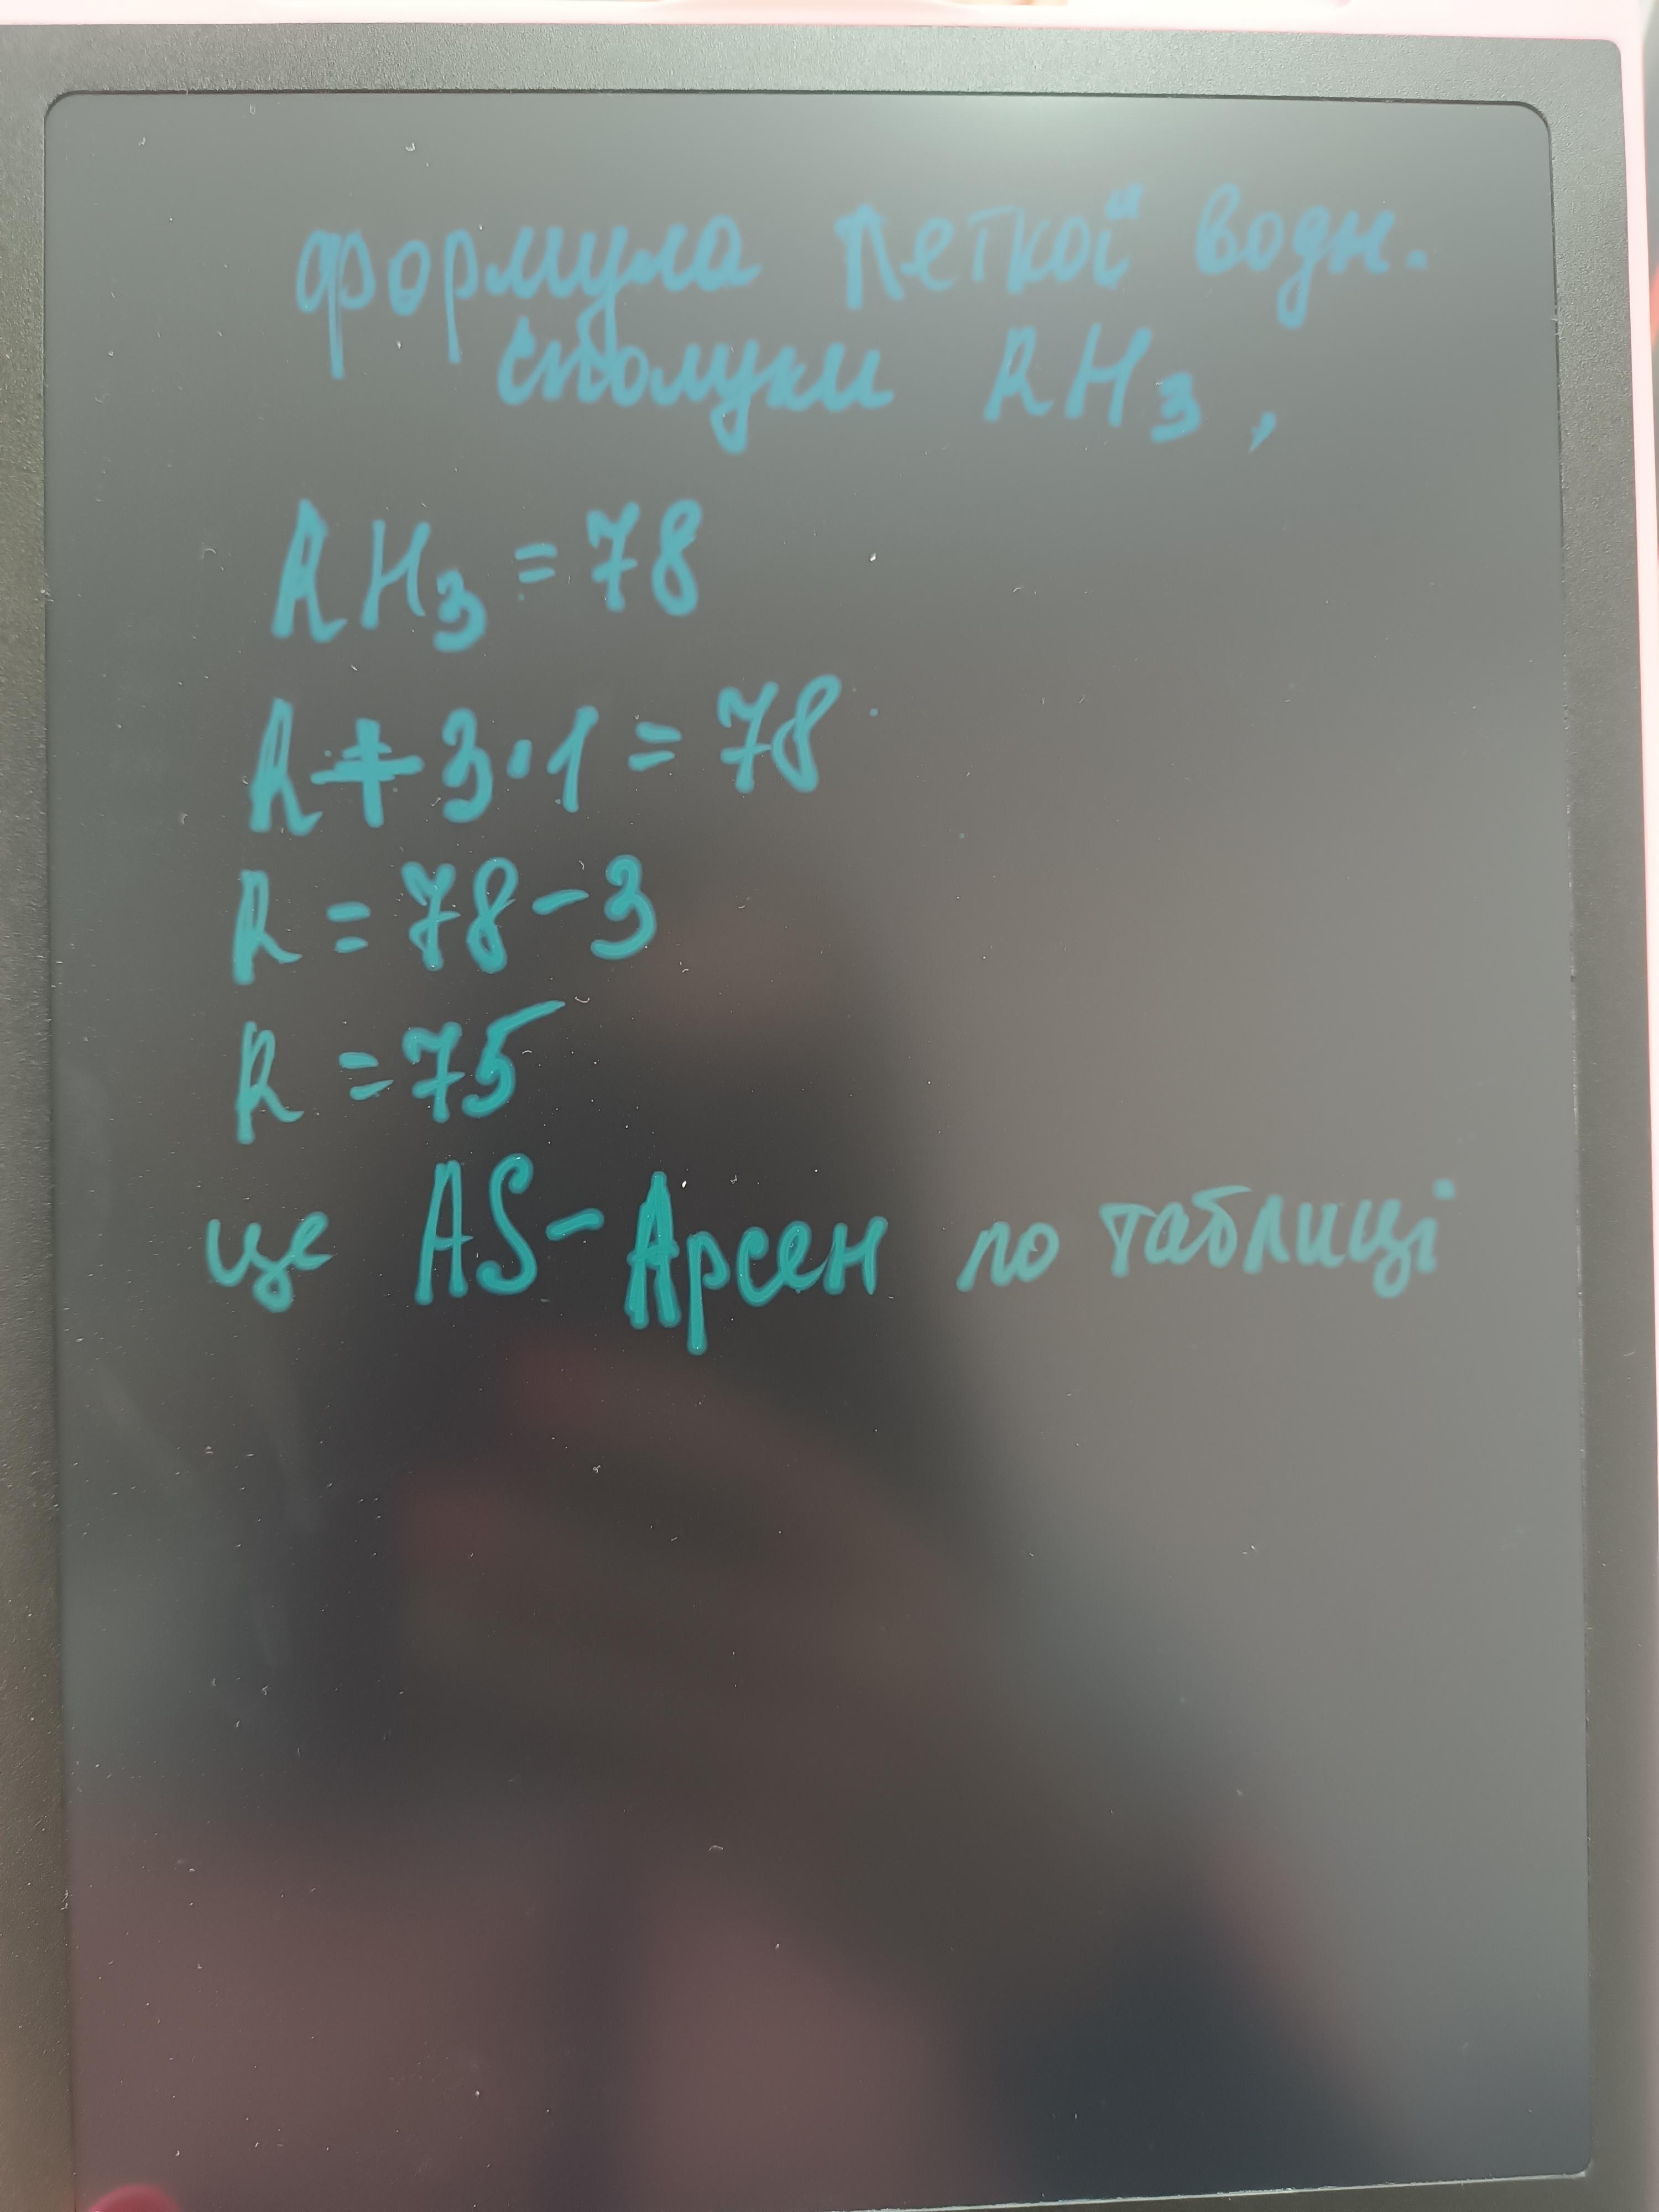 формула леткої водн.
сполуки RH₃,
RH₃ = 78
R + 3·1 = 78
R = 78 - 3
R = 75
це AS - Арсен по таблиці